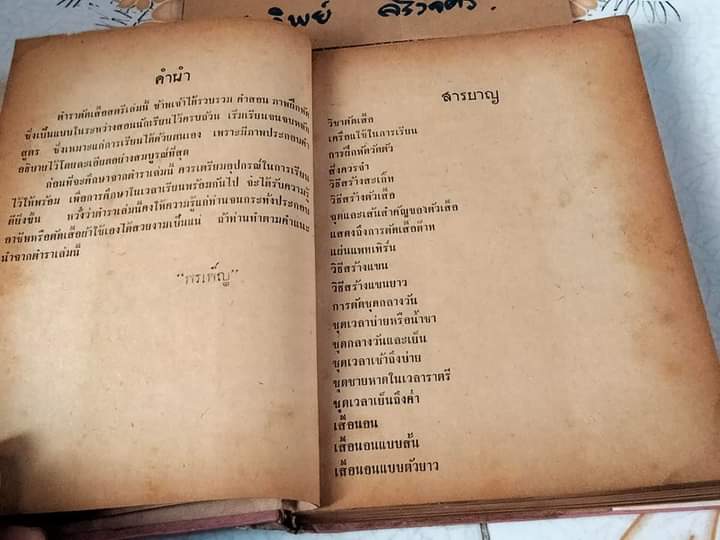 ทิพย์
คำนำ
ตำราตัดเสื้อสตรีเล่มนี้ ข้าพเจ้าได้รวบรวม คำสอน ภาพฝึกหัด
ซึ่งเป็นแบบในระหว่างสอนนักเรียนไว้ครบถ้วน เริ่มเรียนจนจบหลัก
สูตร ซึ่งเหมาะแก่การเรียนได้ด้วยตนเอง เพราะมีภาพประกอบคำ
อธิบายไว้โดยละเอียดอย่างสมบูรณ์ที่สุด
ก่อนที่จะศึกษาจากตำราเล่มนี้ ควรเตรียมอุปกรณ์ในการเรียน
ไว้ให้พร้อม เพื่อการศึกษาในเวลาเรียนพร้อมกันไป จะได้รับความรู้
ดียิ่งขึ้น หวังว่าตำราเล่มนี้คงให้ความรู้แก่ท่านจนกระทั่งประกอบ
อาชีพหรือตัดเสื้อผ้าใช้เองได้สวยงามเป็นแน่ ถ้าท่านทำตามคำแนะ
นำจากตำราเล่มนี้
“พรเพ็ญ”
สารบาญ
วิชาตัดเสื้อ
เครื่องใช้ในการเรียน
การฝึกหัดวัดตัว
สิ่งควรจำ
วิธีสร้างสะเก็ท
วิธีสร้างตัวเสื้อ
จุดและเส้นสำคัญของตัวเสื้อ
แสดงถึงการตัดเสื้อด๊าท
แผ่นแพทเทิร์น
วิธีสร้างแขน
วิธีสร้างแขนยาว
การตัดชุดกลางวัน
ชุดเวลาบ่ายหรือน้ำชา
ชุดกลางวันและเย็น
ชุดเวลาเช้าถึงบ่าย
ชุดชายหาดในเวลาราตรี
ชุดเวลาเย็นถึงค่ำ
เสื้อนอน
เสื้อนอนแบบสั้น
เสื้อนอนแบบตัวยาว